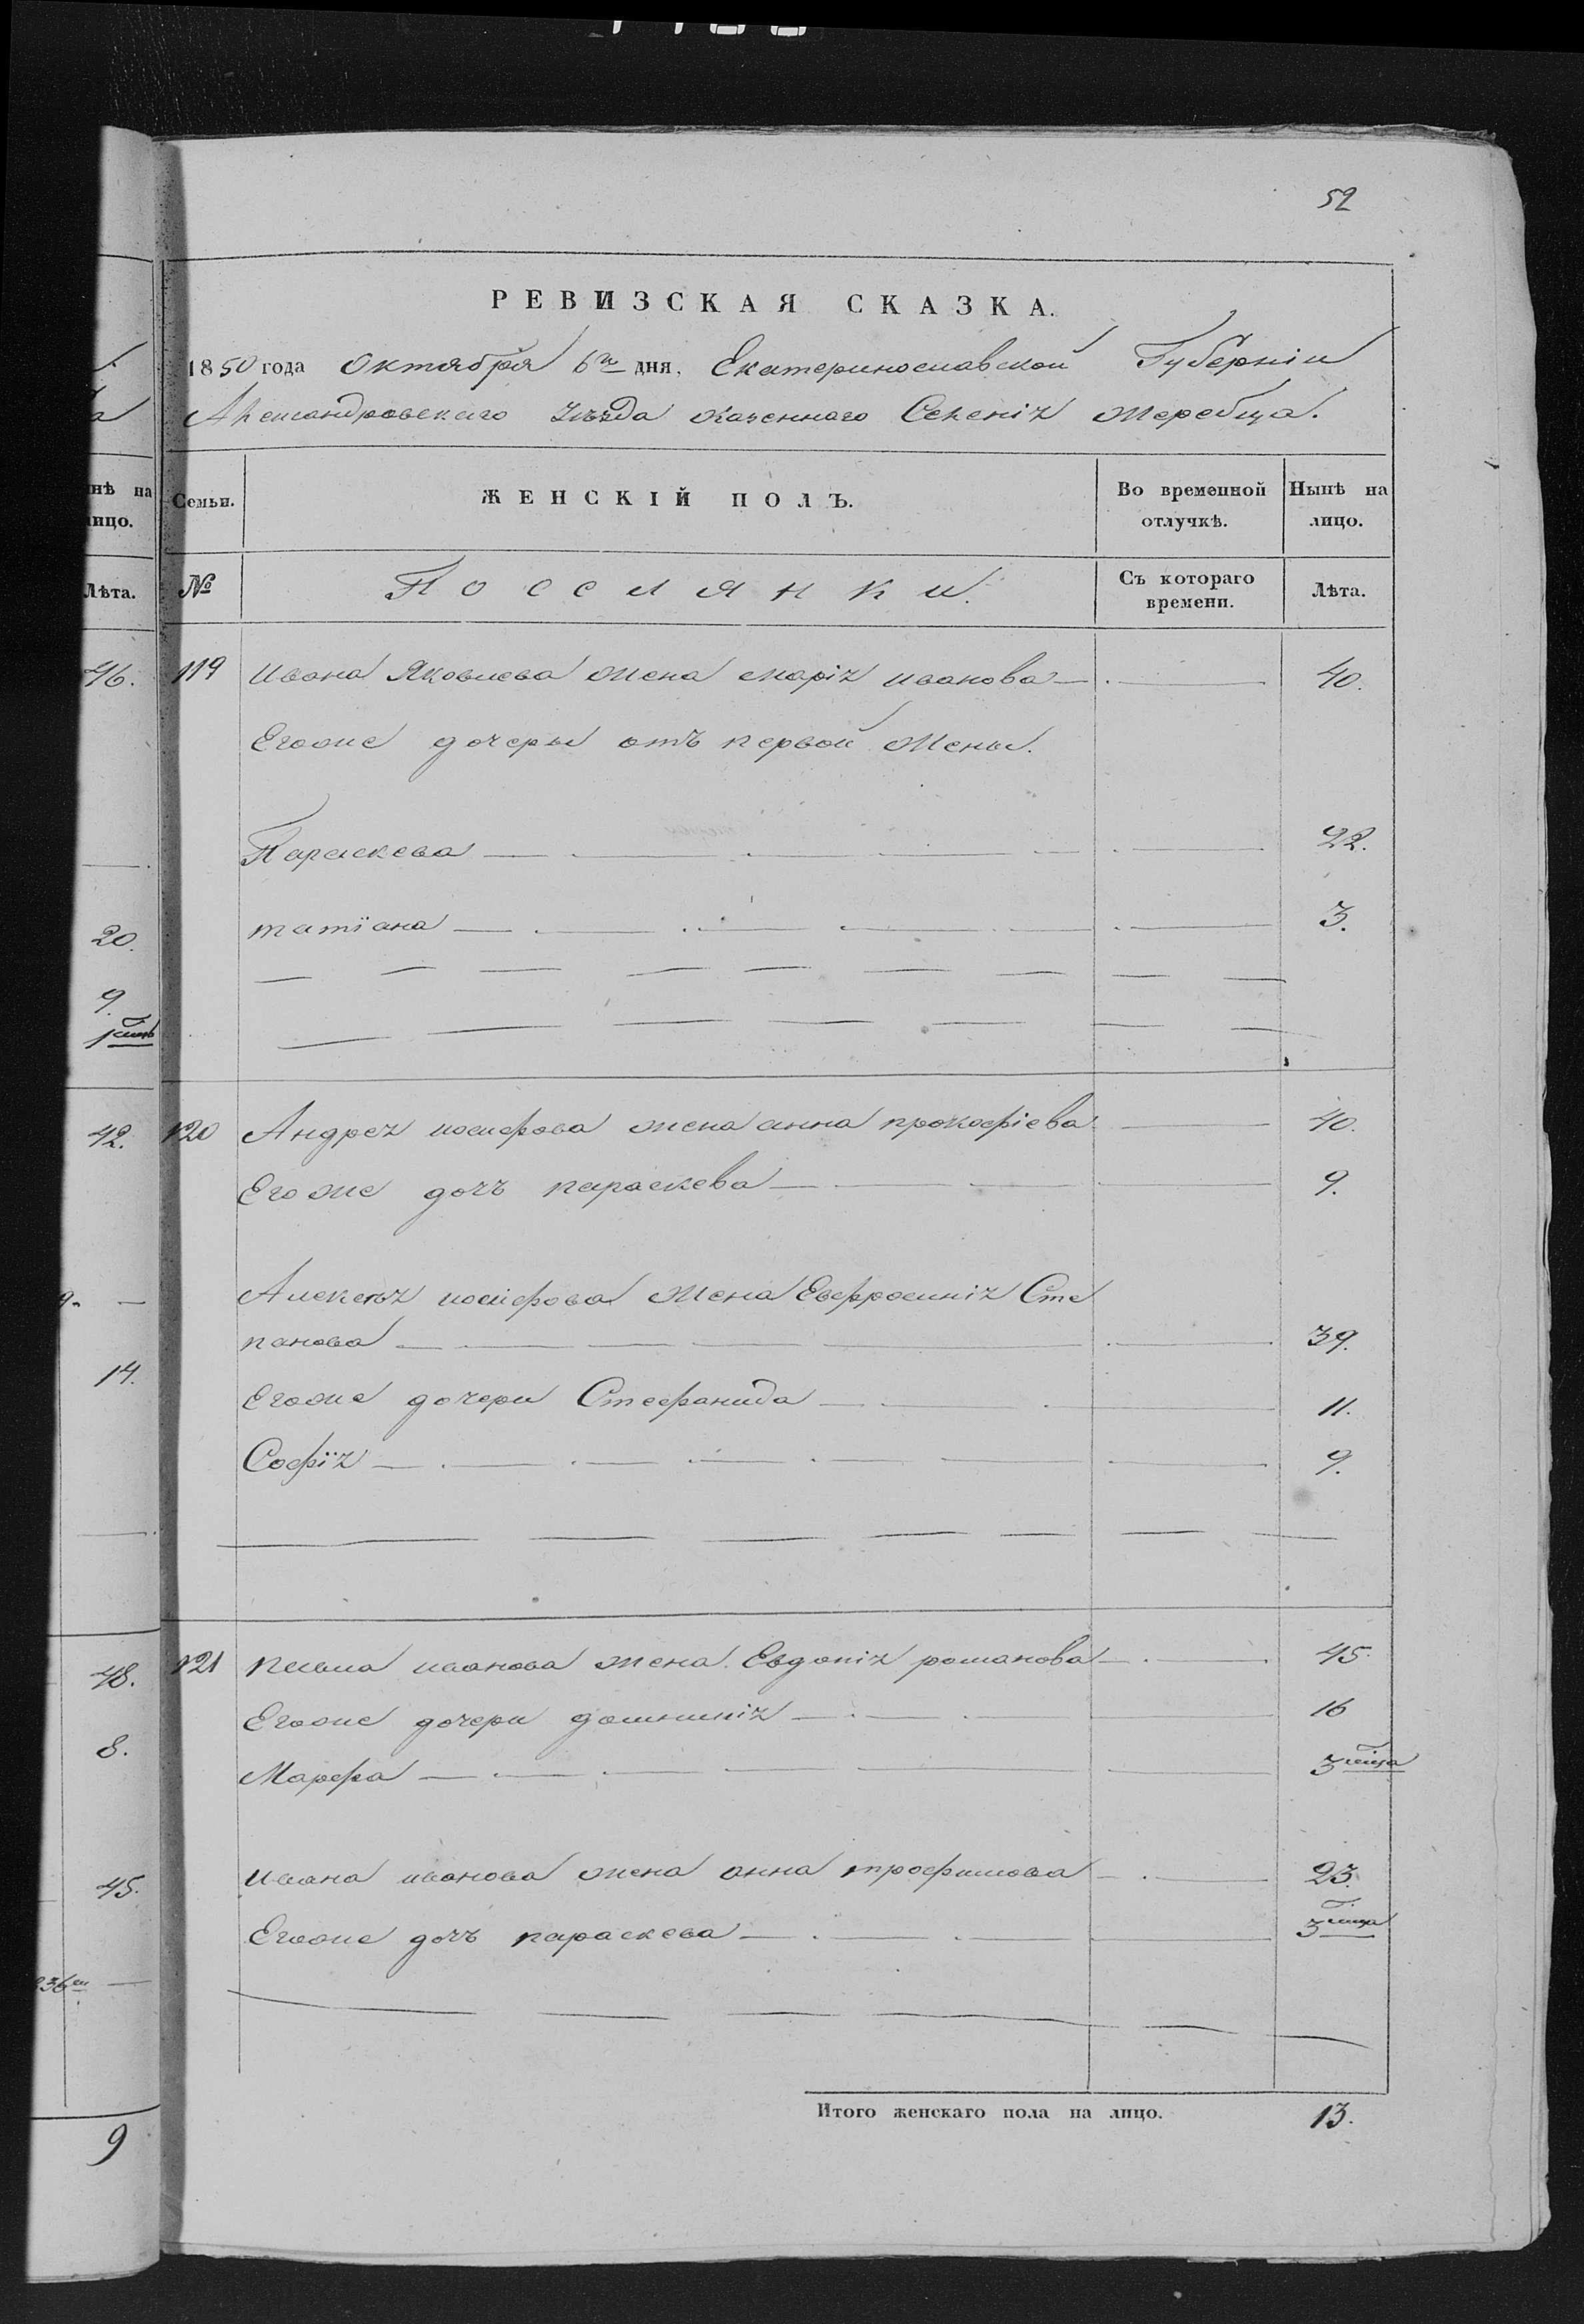 52
РЕВИЗСКАЯ СКАЗКА.
1850 года Октября 6го дня, Екатеринославской Губерніи
Александровскаго уѣзда казеннаго Селенія Жеребца.
Семьи.
ЖЕНСКІЙ ПОЛЪ.
Во временной отлучкѣ.
Нынѣ на лицо.
№
Поселянки.
Съ котораго времени.
Лѣта.
119 Ивана Яковлева жена марія иванова 40.
Егоже дочеры отъ первой жены.
Параскева 22.
татіана 3.
120 Андрея иосифова жена анна прокофіева 40.
Егоже дочъ параскева 9.
Алексѣя иосифова жена Евфросинія Сте
панова 39.
Егоже дочери Стефанида 11.
Софія 9.
121 иванова жена Евдокія романова 45.
Егоже дочери домникія 16
Марфа 3 мѣца
ивана иванова жена анна трофимова 23.
Егоже дочъ параскева 3 мѣца
Итого женскаго пола на лицо. 13.
нѣ на
лицо.
Лѣта.
46.
20.
9.
42.
14.
48.
8.
45.
9